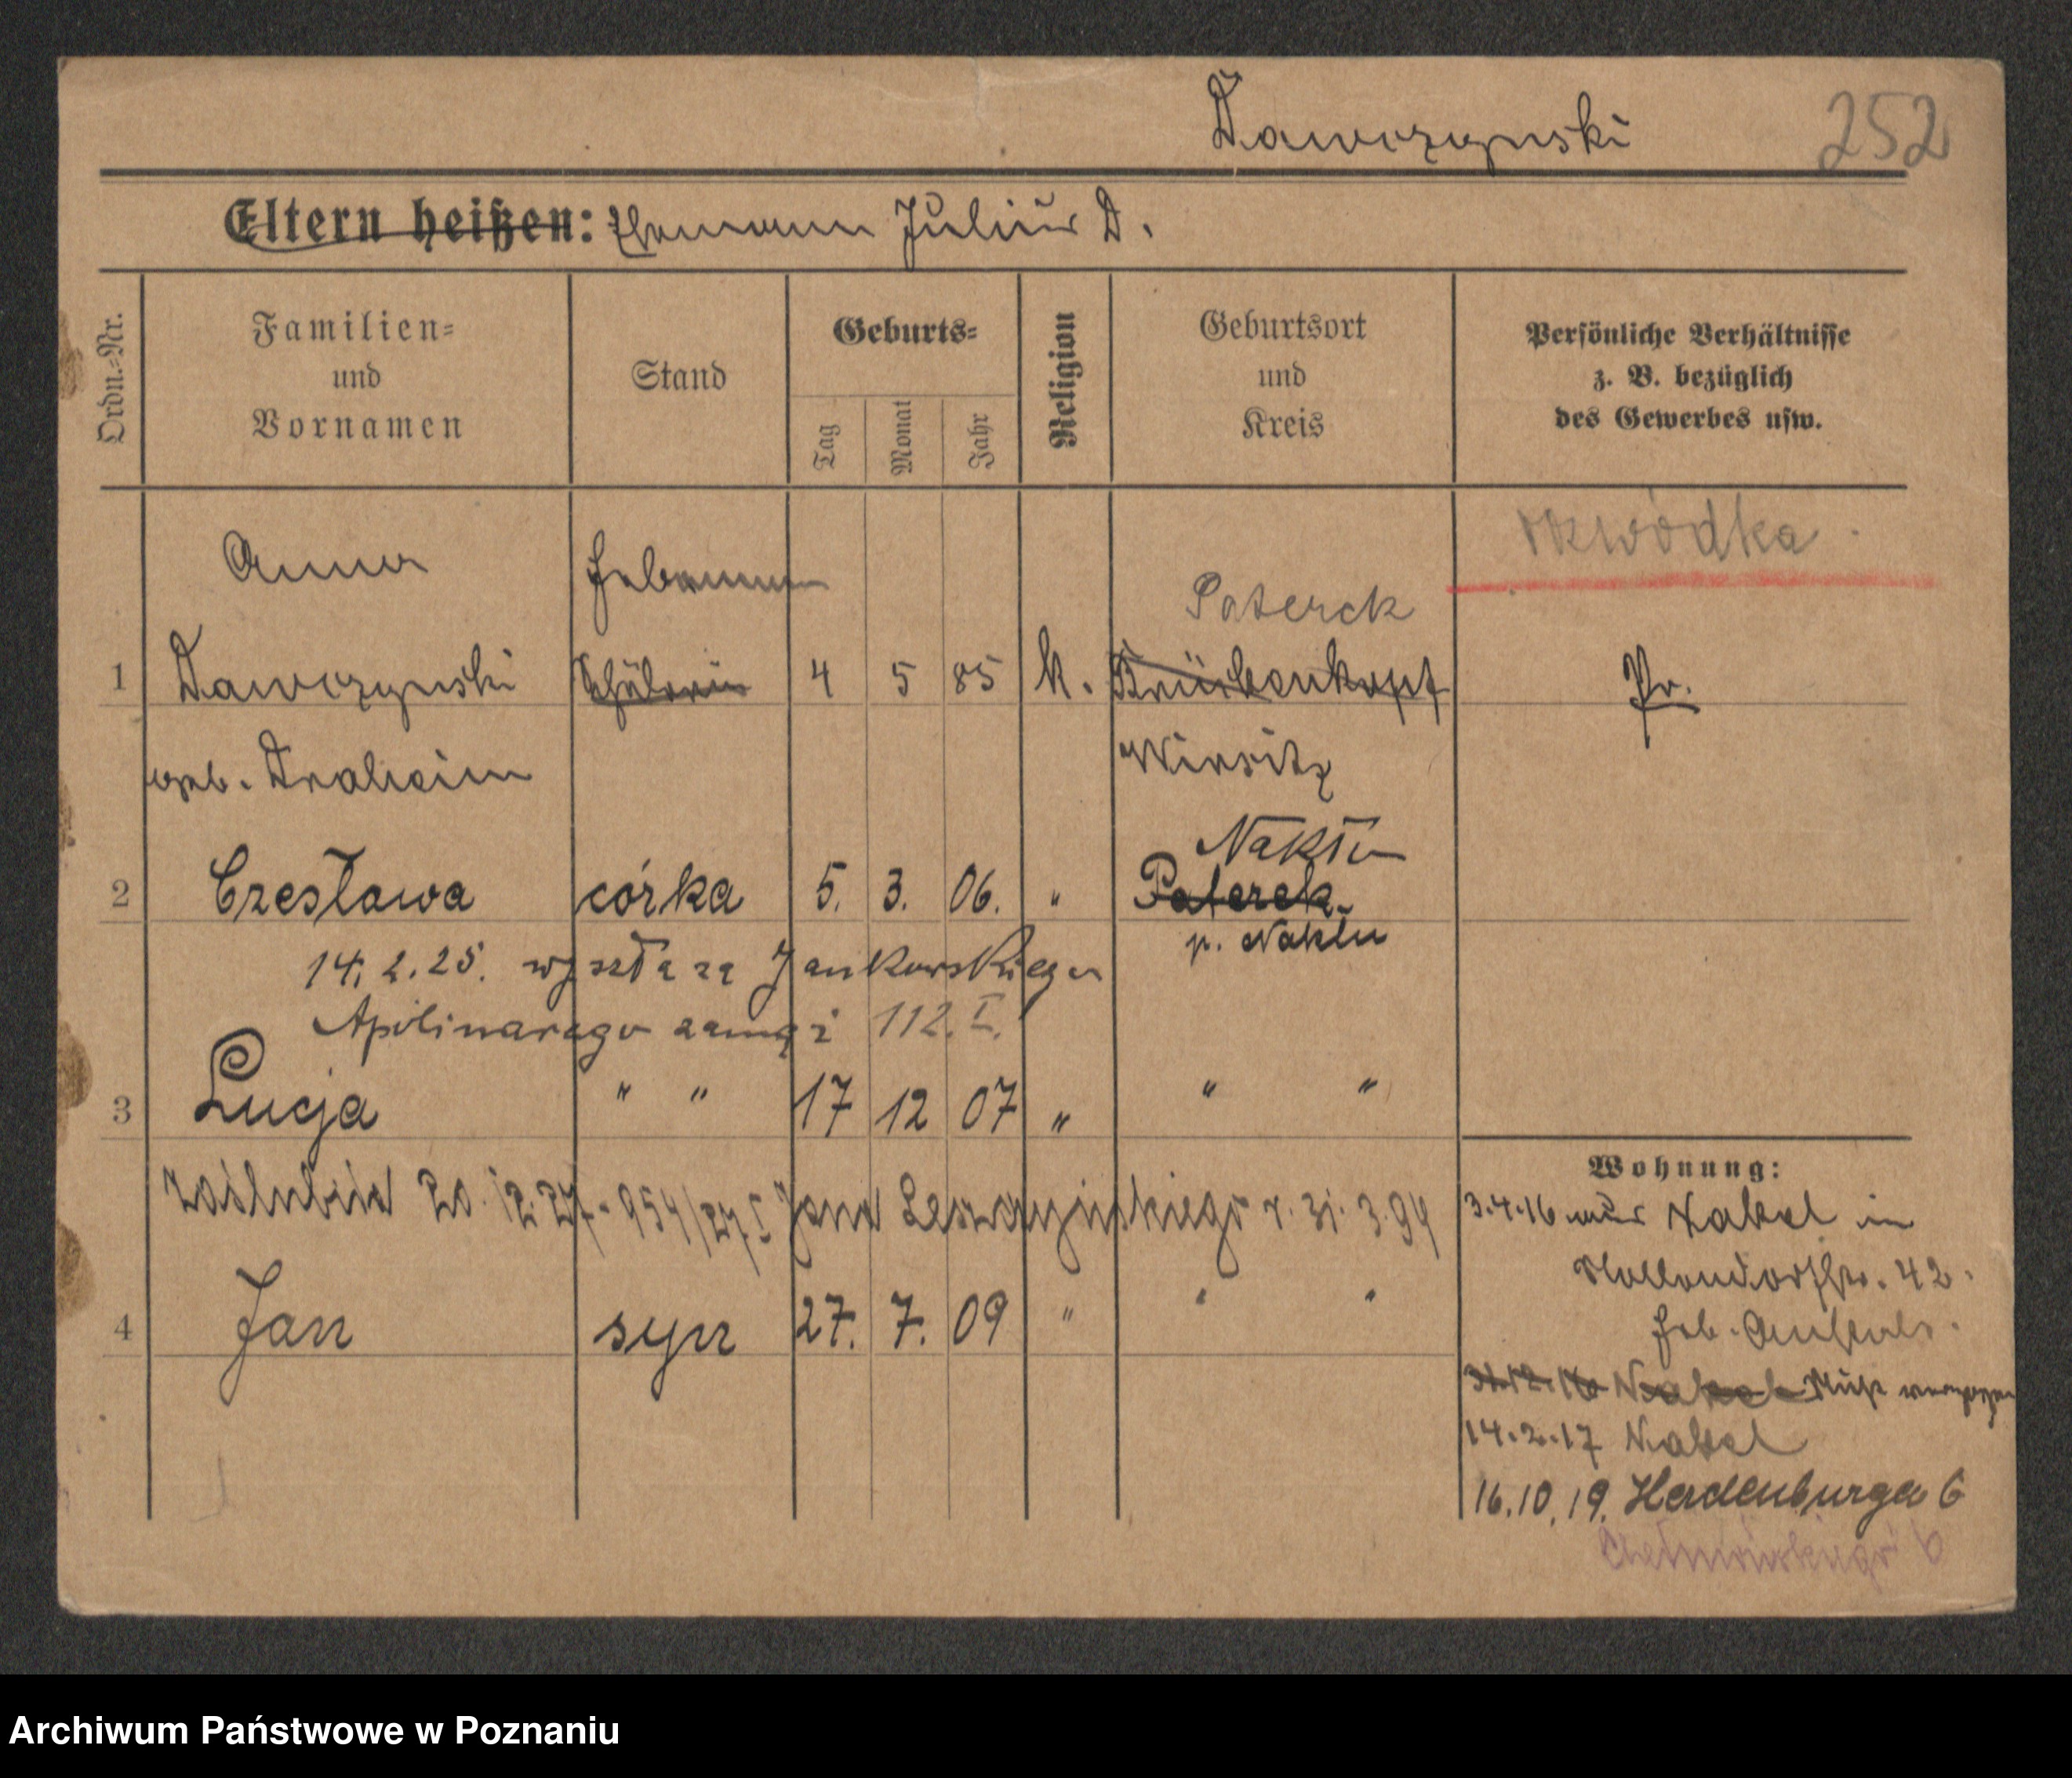 Dawczynski 252
Eltern heißen: Ehemann Julius D.
Ordn.-Nr. Familien- und Vornamen Stand Geburts- Tag Monat Jahr Religion Geburtsort und Kreis Persönliche Verhältnisse z. B. bezüglich des Gewerbes usw.
rozwódka
Anna Hebamme
Paterek
1 Dawczynski Schülerin 4 5 85 k. Pr.
geb. Draheim Wirsitz
Nakło
2 Czesława córka 5. 3. 06. " Paterek
p. Nakłu
14.2.25. wyszła za Jankowskiego
Apolinarego 112. I.
3 Łucja " " 17 12 07 " " "
Wohnung:
zaślubiła 20.12.27 - 954/27 I Jana Leszczyńskiego r. 31.3.94
3.4.16 aus Nakel in
42.
4 Jan syn 27. 7. 09 " " "
31.12.16 Nakel
14.2.17 Nakel
16.10.19. 6
Chełmońskiego 6
Archiwum Państwowe w Poznaniu